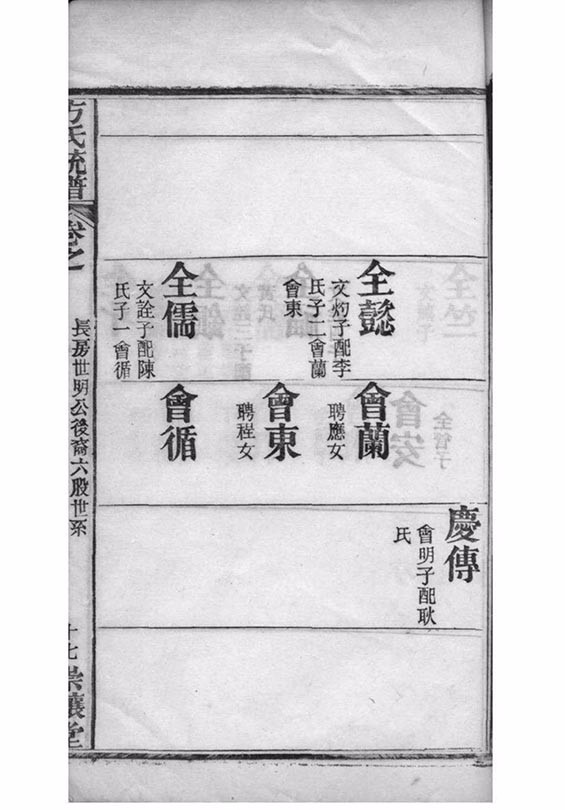 全懿
文灼子配李
氏子二會蘭
會東
全儒
文詮子配陳
氏子一會循
會蘭
聘應女
會東
聘程女
會循
慶傳
會明子配耿
氏
方氏統譜
卷之
長房世明公後裔六股世系
十七
崇讓堂